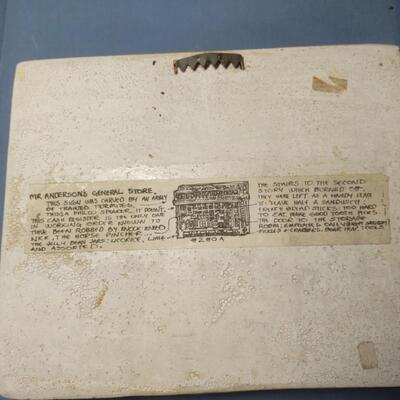 MR. ANDERSON'S GENERAL STORE.
THIS SIGN WAS CARVED BY AN ARMY
OF TRAINED TERMITES.
THIS A PHILCO SPEAKER, IT DOESN'T
THIS CASH REGISTER IS THE ONLY ONE
IN WORKING ORDER KNOWN TO
HAVE BEEN ROBBED BY KNOCK KNEED
NICK, THE HORSE PINCHER.
THE JELLY BEAN JARS: LICORICE, LIME
AND ASSORTED.
#280A
THE STAIRS TO THE SECOND
STORY WHICH BURNED OFF
THEY WAS LEFT AS A HANDY PLACE
T' HAVE HALF A SANDWICH.
BREAD STICKS: TOO HARD
TO EAT, MAKE GOOD TOOTH PICKS
THE DOOR TO THE STORAGE
ROOM: EMPTY
PICKLES & CRACKERS. BEAR TRAP. TOOLS